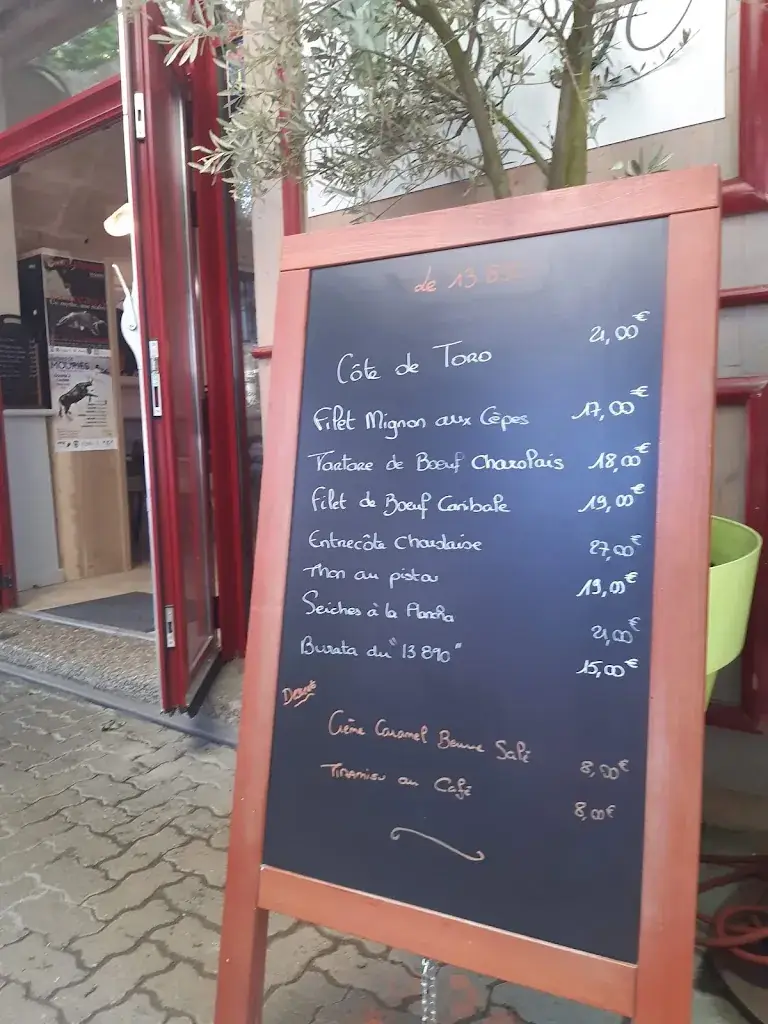 de 13 890
Côte de Toro 21,00€
Filet Mignon aux Cèpes 17,00€
Tartare de Boeuf Charolais 18,00€
Filet de Boeuf Canibale 19,00€
Entrecôte Charolaise 27,00€
Thon au pistou 19,00€
Seiches à la Plancha 21,00€
Burata du "13 890" 15,00€
Desserts
Crème Caramel Beurre Salé 8,00€
Tiramisu au Café 8,00€